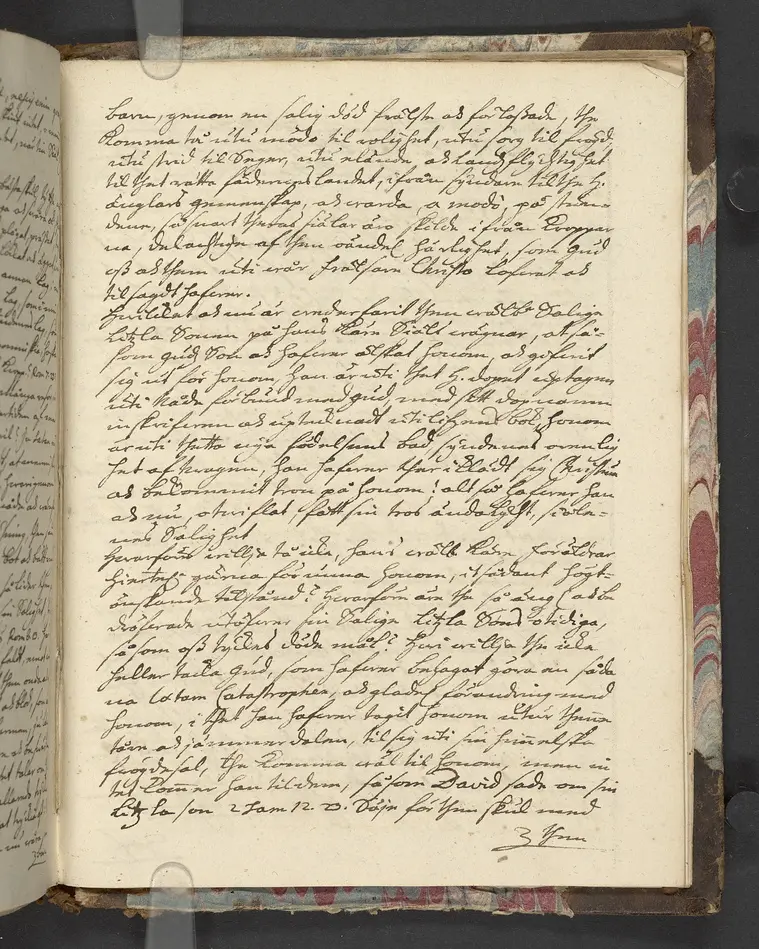 barn, genom en salig död frälste ok förloßade, the
komma tå utu mödo til rolighet, utu sorg til frögd,
utu strid til Seger, utu elände ok landzflychtighet
til thet rätta fäderneslandet, ifrån syndare til the H.
änglars gemenskap, ok warda, a modo, på stun-
dene, så snart theras siälar äro skilde ifrån kroppar
na, delachtige af then oändel. härlighet, som Gud
oß ok them uti wår frälsare Christo lofwat ok
tilsagdt hafwer.
Hwilket ok nu är wederfarit then wälb:e Salige
Litzla Sonen på hans käre Siäls wägnar, at så-
som Guds Son ok hafwer älskat honom, ok gifwit
sig ut för honom, han är uti thet H. dopet uptagen
uti Nåde förbund med Gud, med sitt dopnamn
inskrifwen ok uptecknadt uti lifzens bok, honom
är uti thetta nya födelsens bad, syndenes orenlig
het aftwagen, han hafwer ther iklädt sig Christum
ok bekommit tron på honom: altså hafwer han
ok nu, otwiflat, fått sin tros ändalycht, siäle-
nes Salighet
Hwarföre willja tå icke, hans wälb. käre föräldrar
hierteligen gärna förunna honom, itt sådant högt-
önskande tilstånd? Hwarföre äre the så ängsl. ok be
dröfwade utöfwer sin Salige Litzla Sons otidiga,
så som oß tyckes döde mål? Hwi willja the icke
heller tacka Gud, som hafwer behagat göra en såda
na lætam Catastrophen, ok gladel. förandring med
honom, i thet han hafwer tagit honom utur thenna
tåre ok jämmerdalen, til sig uti sin himmelska
frögdesal, the komma wäl til honom, men in
tet komer han til dem, såsom David sade om sin
Litzla son 2 Sam 12. 23. Säje för then skul med
then